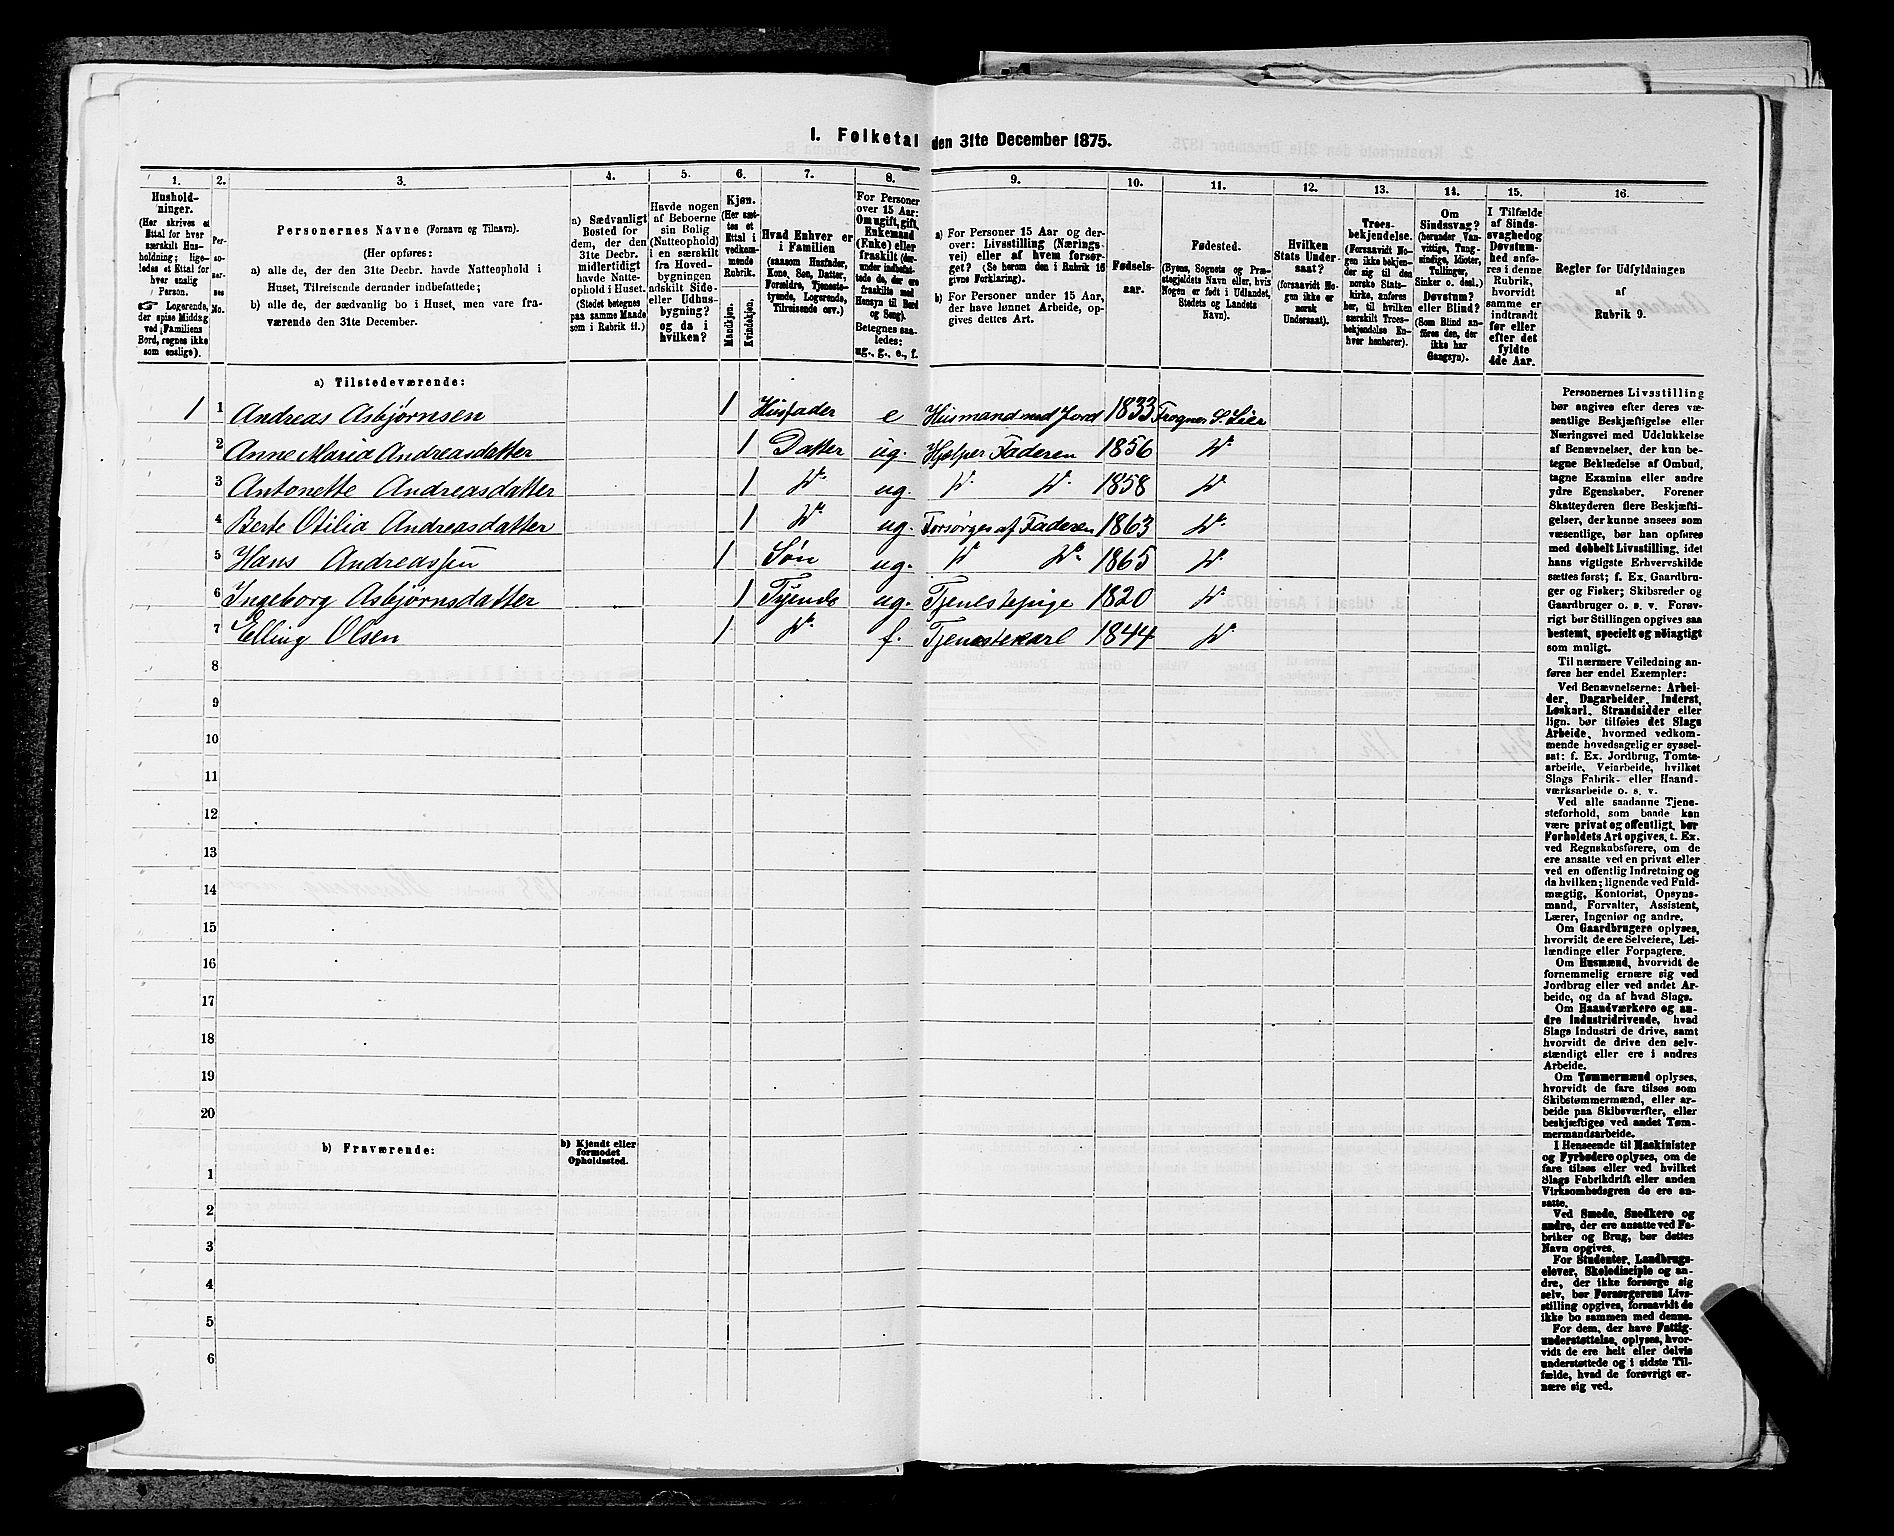 1. Folketal den 31te December 1875.
1. 2. 3. 4. 5. 6. 7. 8. 9. 10. 11. 12. 13. 14. 15. 16.
Hushold-
ninger.
(Her skrives et
Ettal for hver
særskilt Hus-
holdning; lige-
ledes et Ettal for
hver enslig
Person.
☞ Logerende,
der spise Middag
ved Familiens
Bord, regnes ikke
som enslige).
Per-
so-
ner-
nes
No.
Personernes Navne (Fornavn og Tilnavn).
(Her opføres:
a) alle de, der den 31te Decbr. havde Natteophold i
Huset, Tilreisende derunder indbefattede;
b) alle de, der sædvanlig bo i Huset, men vare fra-
værende den 31te December.
a) Sædvanligt
Bosted for
dem, der den
31te Decbr.
midlertidigt
havde Natte-
ophold i Huset.
(Stedet betegnes
paa samme Maade
som i Rubrik 11.)
Havde nogen
af Beboerne
sin Bolig
(Natteophold)
i en særskilt
fra Hoved-
bygningen
adskilt Side-
eller Udhus-
bygning?
og da i
hvilken?
Kjøn.
(Her sæt-
tes et
Ettal i
vedkom-
mende
Rubrik.
Mandkjøn.
Kvindekjøn.
Hvad Enhver er
i Familien
(saasom Husfader,
Kone, Søn, Datter,
Forældre, Tjeneste-
tyende, Logerende,
Tilreisende osv.)
For Personer
over 15 Aar:
Om ugift, gift,
Enkemand
(Enke) eller
fraskilt (der-
under indbefat-
tede de, der ere
fraskilte med
Hensyn til Bord
og Seng).
Betegnes saa-
ledes:
ug., g., e., f.
a) For Personer 15 Aar og der-
over: Livsstilling (Nærings-
vei) eller af hvem forsør-
get? (Se herom den i Rubrik 16
givne Forklaring).
b) For Personer under 15 Aar,
der have lønnet Arbeide, op-
gives dettes Art.
Fødsels-
aar.
Fødested.
(Byens, Sognets og Præ-
stegjeldets Navn eller, hvis
Nogen er født i Udlandet,
Stedets og Landets
Navn).
Hvilken
Stats Under-
saat?
(forsaavidt No-
gen ikke er
norsk
Undersaat).
Troes-
bekjendelse.
(Forsaavidt No-
gen ikke bekjen-
der sig til den
norske Stats-
kirke, anføres
her, til hvilken
særskilt Troes-
bekjendelse En-
hver henhører).
Om
Sindssvag?
(herunder Van-
vittige, Tung-
sindige, Idioter,
Tullinger,
Sinker o. desl.)
Døvstum?
eller Blind?
(Som Blind an-
føres den, der
ikke har
Gangsyn).
I Tilfælde
af Sinds-
svaghed og
Døvstum-
hed anfø-
res i denne
Rubrik,
hvorvidt
samme er
indtraadt
før eller
efter det
fyldte
4de Aar.
Regler for Udfyldningen
af
Rubrik 9.
a) Tilstedeværende:
1 1 Andreas Asbjørnsen 1 Husfader e Husmand med Jord 1833 Frogner S. Lier
2 Anne Maria Andreasdatter 1 Datter ug. Hjelper Faderen 1856 do
3 Antonette Andreasdatter 1 do ug. do do 1858 do
4 Berte Otilia Andreasdatter 1 do ug. Forsørges af Faderen 1863 do
5 Hans Andreassen 1 Søn ug. do do 1865 do
6 Ingeborg Asbjørnsdatter 1 Tyende ug. Tjenestepige 1820 do
7 Elling Olsen 1 do f. Tjenestekarl 1844 do
8
9
10
11
12
13
14
15
16
17
18
19
20
b) Fraværende:
b) Kjendt eller
formodet
Opholdssted.
1
2
3
4
5
6
Personernes Livsstilling
bør angives efter deres væ-
sentlige Beskjæftigelse eller
Næringsvei med Udelukkelse
af Benævnelser, der kun be-
tegne Beklædelse af Ombud,
tagne Examina eller andre
ydre Egenskaber. Forener
Skatteyderen flere Beskjæfti-
gelser, der kunne ansees som
væsentlige, bør han opføres
med dobbelt Livsstilling, idet
hans vigtigste Erhvervskilde
sættes først; f. Ex. Gaardbru-
ger og Fisker; Skibsreder og
Gaardbruger o. s. v. Forøv-
rigt bør Stillingen opgives saa
bestemt, specielt og nøiagtigt
som muligt.
Til nærmere Veiledning an-
føres her endel Exempler:
Ved Benævnelserne: Arbei-
der, Dagarbeider, Inderst,
Løskarl, Strandsidder eller
lign. bør tilføies det Slags
Arbeide, hvormed vedkom-
mende hovedsagelig er syssel-
sat: f. Ex. Jordbrug, Tomte-
arbeide, Veiarbeide, hvilket
Slags Fabrik- eller Haand-
værksarbeide o. s. v.
Ved alle saadanne Tjene-
steforhold, som baade kan
være privat og offentligt, bør
Forholdets Art opgives, t. Ex.
ved Regnskabsførere, om de
ere ansatte ved en privat eller
ved en offentlig Indretning og
da hvilken; lignende ved Fuld-
mægtig, Kontorist, Opsyns-
mand, Forvalter, Assistent,
Lærer, Ingeniør og andre.
Om Gaardbrugere oplyses,
hvorvidt de ere Selveiere, Lei-
lændinge eller Forpagtere.
Om Husmænd, hvorvidt de
fornemmelig ernære sig ved
Jordbrug eller ved andet Ar-
beide, og da af hvad Slags.
Om Haandværkere og an-
dre Industridrivende, hvad
Slags Industri de drive, samt
hvorvidt de drive den selv-
stændigt eller ere i andres
Arbeide.
Om Tømmermænd oplyses,
hvorvidt de fare tilsøs som
Skibstømmermænd, eller ar-
beide paa Skibsværfter, eller
beskjæftiges ved andet Tøm-
mermandsarbeide.
I Henseende til Maskinister
og Fyrbødere oplyses, om de
fare tilsøs eller ved hvilket
Slags Fabrikdrift eller anden
Virksombedsgren de ere an-
satte.
Ved Smede, Snedkere og
andre, der ere ansatte ved Fa-
briker og Brug, bør dettes
Navn opgives.
For Studenter, Landbrugs-
elever, Skoledisciple og an-
dre, der ikke forsørge sig
selv, bør Forsørgerens Livs-
stilling opgives, forsaavidt de
ikke bo sammen med denne.
For dem, der have Fattig-
understøttelse, oplyses, hvor-
vidt de ere helt eller delvis
understøttede og i sidste Til-
fælde, hvad de forøvrigt er-
nære sig ved.